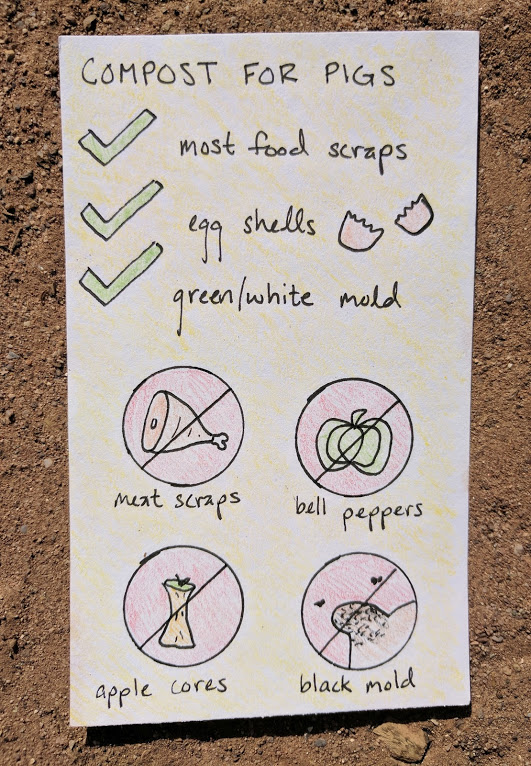 COMPOST FOR PIGS
most food scraps
egg shells
green/white mold
meat scraps
bell peppers
apple cores
black mold